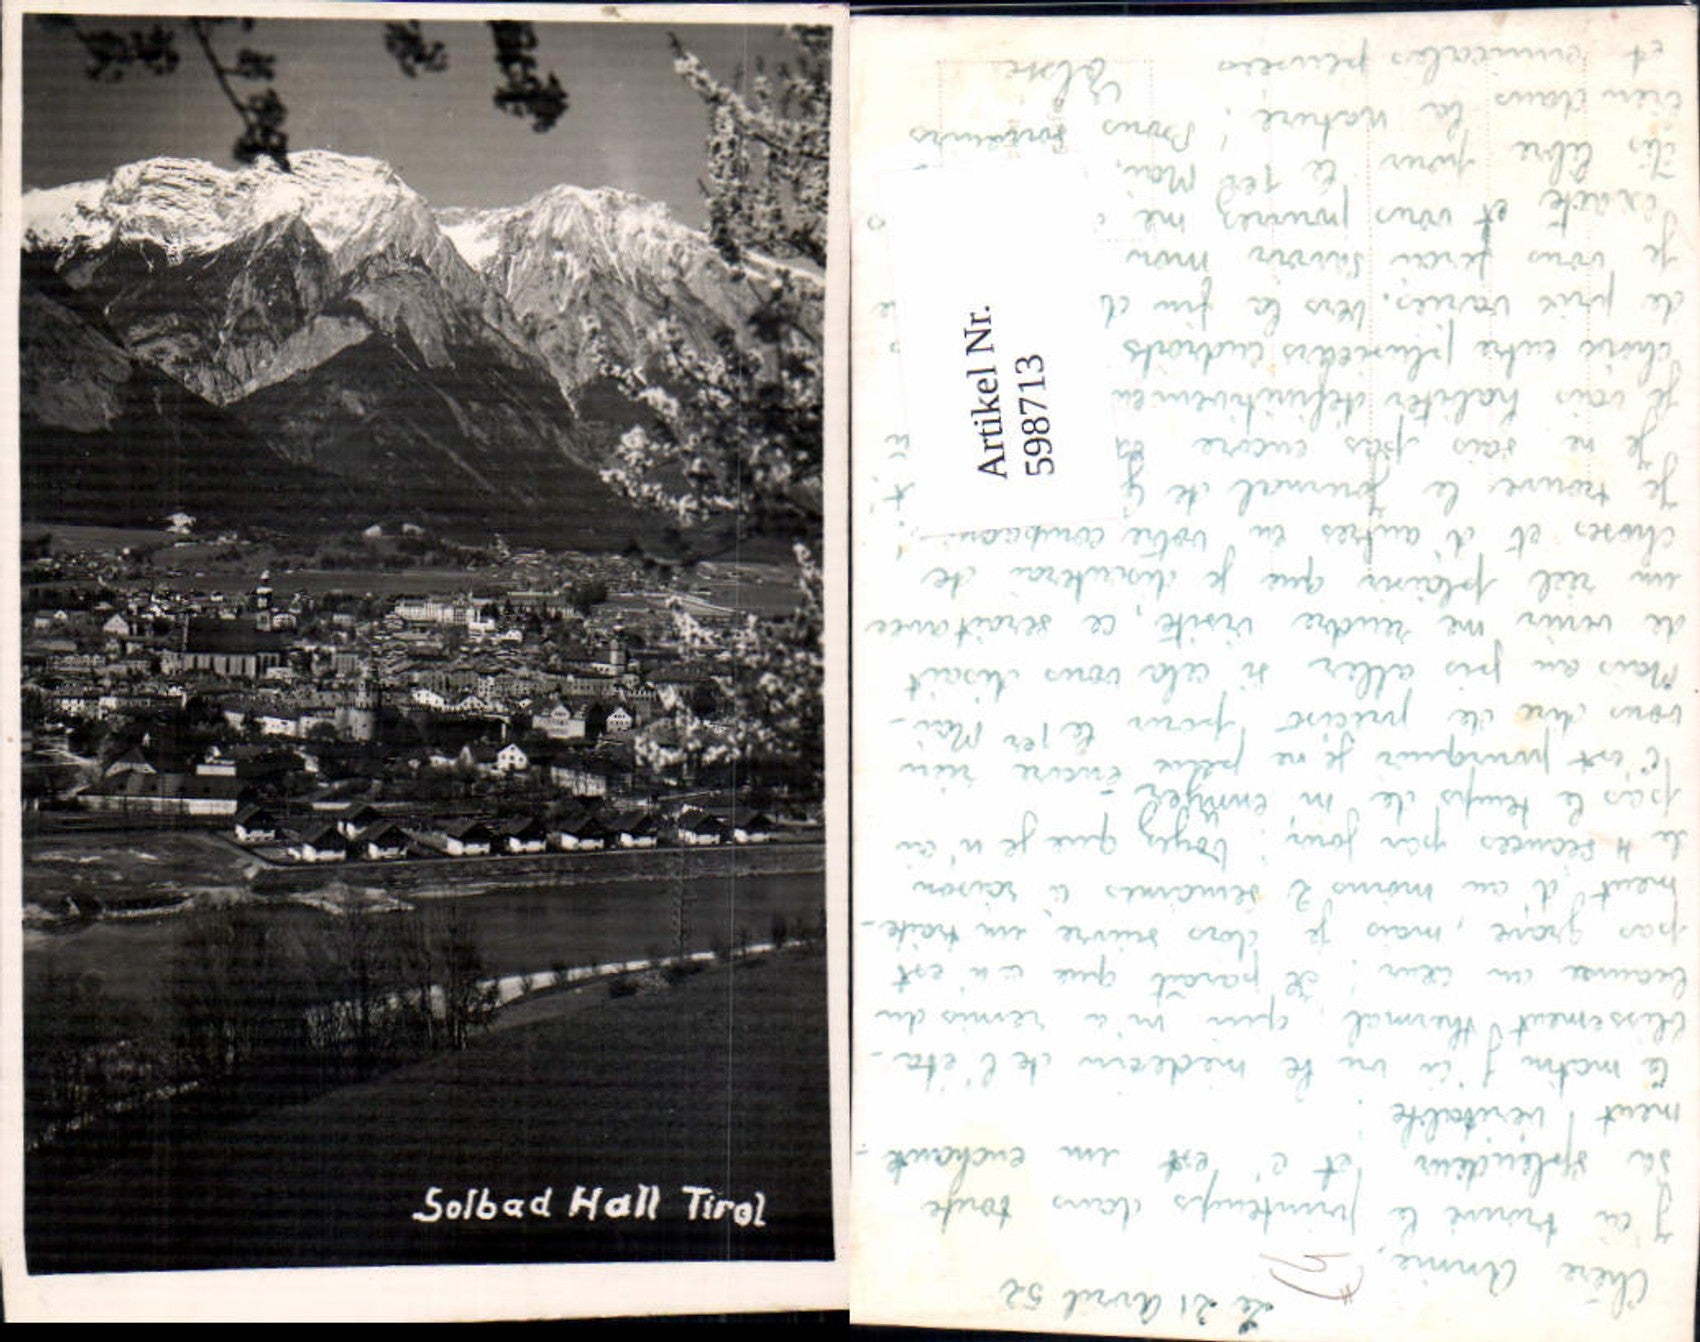 Solbad Hall Tirol
Artikel Nr.
598713
Le 21 Avril 52
Chère Annie,
J'ai trouvé le printemps dans toute
sa splendeur et c'est un enchante-
ment véritable!
Ce matin j'ai vu le médecin de l'éta-
blissement thermal, qui m'a remis du
baume au cœur! Il paraît que ce n'est
pas grave, mais je dois suivre un traite-
ment d'au moins 2 semaines à raison
de 4 séances par jour! Voyez que je n'ai
pas le temps de m'ennuyer -
C'est pourquoi je ne peux encore rien
vous dire de précis pour le 1er Mai -
Mais au pis aller si cela vous disait
de venir me rendre visite, ce serait avec
un réel plaisir que je discuterai de
choses et d'autres en votre compagnie!
Je trouve le journal de
Je ne sais pas encore
Je vais habiter définitivement
choix entre plusieurs endroits
de prix variés. Vers la fin d
je vous ferai savoir mon
exacte et vous pourrez me
êtes libre pour le 1er Mai.
bien dans la nature! Bons
et amicales pensées